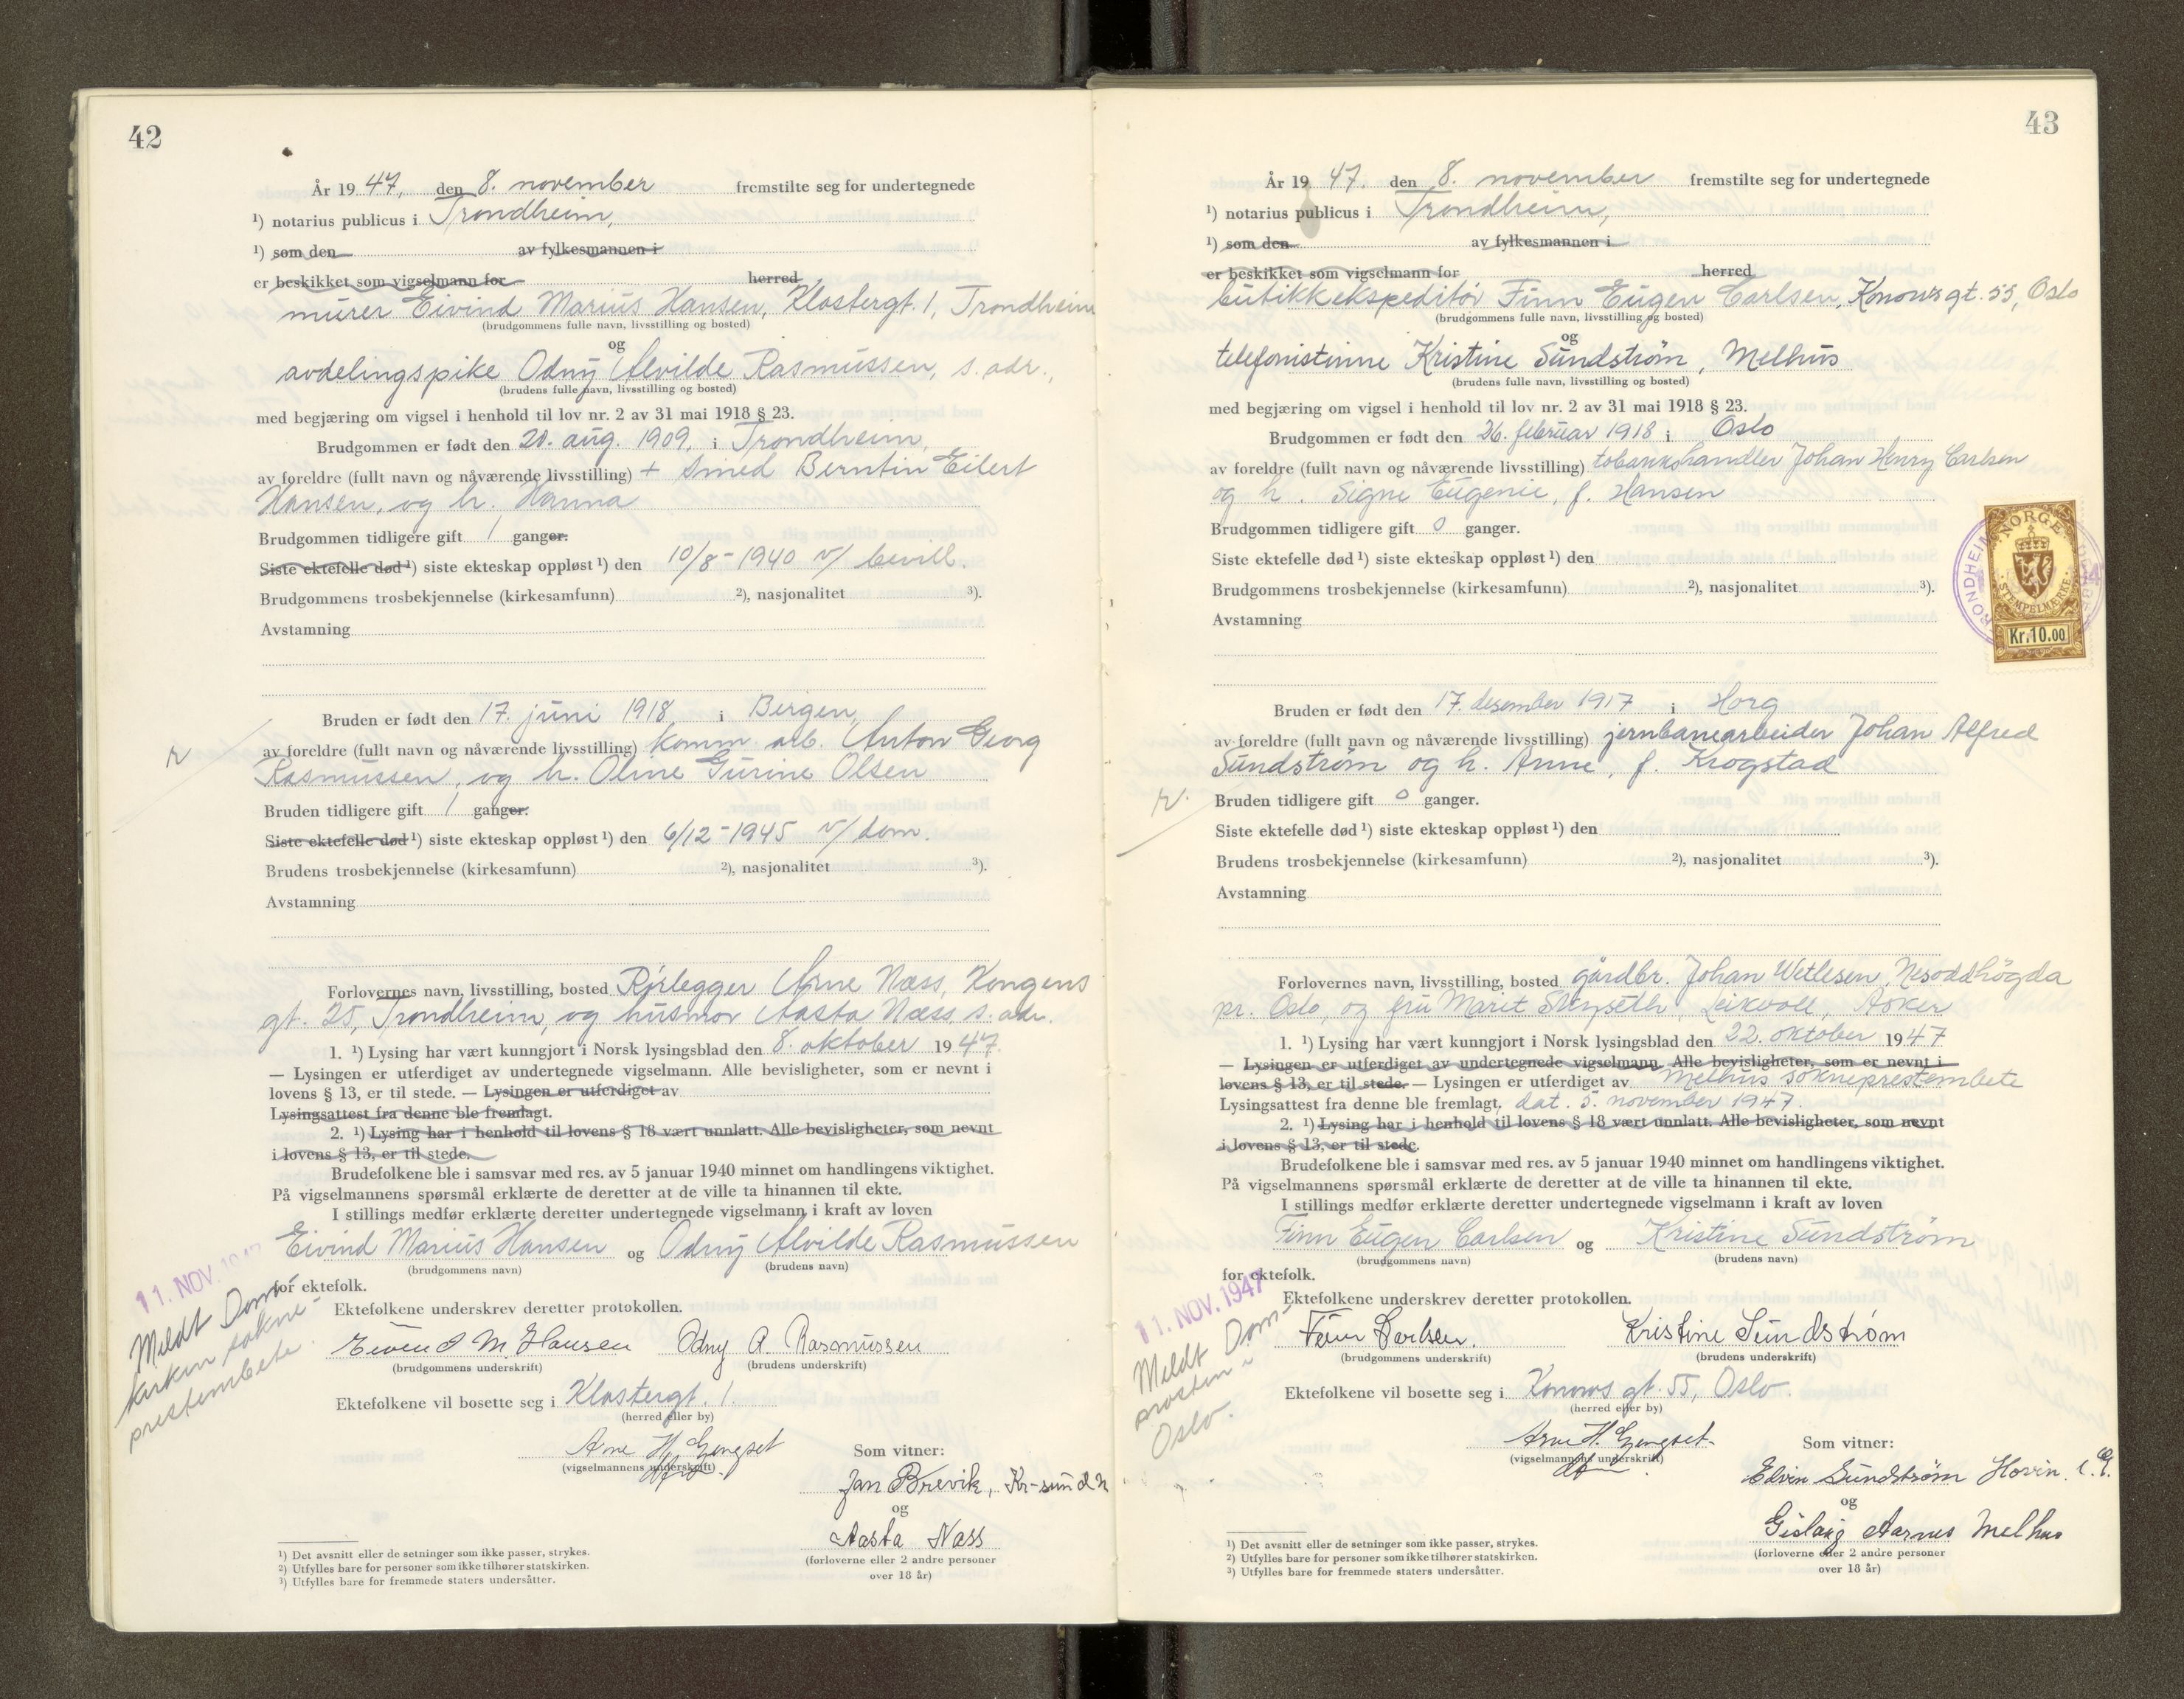 42
År 19 47, den 8. november fremstilte seg for undertegnede
¹) notarius publicus i Trondheim,
¹) som den av fylkesmannen i
er beskikket som vigselmann for herred
murer Eivind Marius Hansen, Klostergt. 1, Trondheim
(brudgommens fulle navn, livsstilling og bosted)
og
avdelingspike Odny Alvilde Rasmussen, s. adr.,
(brudens fulle navn, livsstilling og bosted)
med begjæring om vigsel i henhold til lov nr. 2 av 31 mai 1918 § 23.
Brudgommen er født den 20. aug. 1909, i Trondheim,
av foreldre (fullt navn og nåværende livsstilling) + smed Berntin Eilert
Hansen, og h. Hanna
Brudgommen tidligere gift 1 ganger.
Siste ektefelle død ¹) siste ekteskap oppløst ¹) den 10/8 - 1940 v/ bevill.
Brudgommens trosbekjennelse (kirkesamfunn) ²), nasjonalitet ³).
Avstamning
Bruden er født den 17. juni 1918, i Bergen,
av foreldre (fullt navn og nåværende livsstilling) komm. arb. Anton Georg
Rasmussen, og h. Oline Gurine Olsen
r
Bruden tidligere gift 1 ganger.
Siste ektefelle død ¹) siste ekteskap oppløst ¹) den 6/12 - 1945 v/ dom.
Brudens trosbekjennelse (kirkesamfunn) ²), nasjonalitet ³).
Avstamning
Forlovernes navn, livsstilling, bosted Rørlegger Arne Næss, Kongens
gt. 25, Trondheim, og husmor Aasta Næss, s. adr.
1. ¹) Lysing har vært kunngjort i Norsk lysingsblad den 8. oktober 19 47.
— Lysingen er utferdiget av undertegnede vigselmann. Alle bevisligheter, som er nevnt i
lovens § 13, er til stede. — Lysingen er utferdiget av
Lysingsattest fra denne ble fremlagt.
2. ¹) Lysing har i henhold til lovens § 18 vært unnlatt. Alle bevisligheter, som nevnt
i lovens § 13, er til stede.
Brudefolkene ble i samsvar med res. av 5 januar 1940 minnet om handlingens viktighet.
På vigselmannens spørsmål erklærte de deretter at de ville ta hinannen til ekte.
I stillings medfør erklærte deretter undertegnede vigselmann i kraft av loven
Eivind Marius Hansen og Odny Alvilde Rasmussen
(brudgommens navn) (brudens navn)
for ektefolk.
11. NOV. 1947
Meldt Dom-
kirken sokne-
prestembete.
Ektefolkene underskrev deretter protokollen.
Eivind M. Hansen Odny A. Rasmussen
(brudgommens underskrift) (brudens underskrift)
Ektefolkene vil bosette seg i Klostergt. 1.
(herred eller by)
Arne H. Gengset
(vigselmannens underskrift)
Som vitner:
Jan Brevik, Kr-sund N
og
Aasta Næss
(forloverne eller 2 andre personer
over 18 år)
¹) Det avsnitt eller de setninger som ikke passer, strykes.
²) Utfylles bare for personer som ikke tilhører statskirken.
³) Utfylles bare for fremmede staters undersåtter.
43
År 19 47. den 8. november fremstilte seg for undertegnede
¹) notarius publicus i Trondheim,
¹) som den av fylkesmannen i
er beskikket som vigselmann for herred
butikkekspeditör Finn Eugen Carlsen, Konowsgt. 55, Oslo
(brudgommens fulle navn, livsstilling og bosted)
og
telefonistinne Kristine Sundstrøm, Melhus
(brudens fulle navn, livsstilling og bosted)
med begjæring om vigsel i henhold til lov nr. 2 av 31 mai 1918 § 23.
Brudgommen er født den 26. februar 1918 i Oslo
av foreldre (fullt navn og nåværende livsstilling) tobakkshandler Johan Henry Carlsen
og h. Signe Eugenie, f. Hansen
Brudgommen tidligere gift 0 ganger.
Siste ektefelle død ¹) siste ekteskap oppløst ¹) den
Brudgommens trosbekjennelse (kirkesamfunn) ²), nasjonalitet ³).
Avstamning
NORGE
STEMPELMERKE
Kr. 10.00
TRONDHEIM
Bruden er født den 17. desember 1917 i Horg
av foreldre (fullt navn og nåværende livsstilling) jernbanearbeider Johan Alfred
Sundstrøm og h. Anne, f. Krogstad
r.
Bruden tidligere gift 0 ganger.
Siste ektefelle død ¹) siste ekteskap oppløst ¹) den
Brudens trosbekjennelse (kirkesamfunn) ²), nasjonalitet ³).
Avstamning
Forlovernes navn, livsstilling, bosted gårdbr. Johan Wetlesen, Nesoddhögda
pr. Oslo, og fru Marit Leikvoll, Asker
1. ¹) Lysing har vært kunngjort i Norsk lysingsblad den 22. oktober 19 47
— Lysingen er utferdiget av undertegnede vigselmann. Alle bevisligheter, som er nevnt i
lovens § 13, er til stede. — Lysingen er utferdiget av Melhus sokneprestembete
Lysingsattest fra denne ble fremlagt, dat. 5. november 1947.
2. ¹) Lysing har i henhold til lovens § 18 vært unnlatt. Alle bevisligheter, som nevnt
i lovens § 13, er til stede.
Brudefolkene ble i samsvar med res. av 5 januar 1940 minnet om handlingens viktighet.
På vigselmannens spørsmål erklærte de deretter at de ville ta hinannen til ekte.
I stillings medfør erklærte deretter undertegnede vigselmann i kraft av loven
Finn Eugen Carlsen og Kristine Sundstrøm
(brudgommens navn) (brudens navn)
for ektefolk.
11. NOV. 1947
Meldt Dom-
prosten i
Oslo.
Ektefolkene underskrev deretter protokollen.
Finn Carlsen. Kristine Sundstrøm
(brudgommens underskrift) (brudens underskrift)
Ektefolkene vil bosette seg i Konows gt. 55, Oslo.
(herred eller by)
Arne H. Gengset
(vigselmannens underskrift)
Som vitner:
Edvin Sundstrøm Hovin.
og
Gislaug Aarnes Melhus
(forloverne eller 2 andre personer
over 18 år)
¹) Det avsnitt eller de setninger som ikke passer, strykes.
²) Utfylles bare for personer som ikke tilhører statskirken.
³) Utfylles bare for fremmede staters undersåtter.